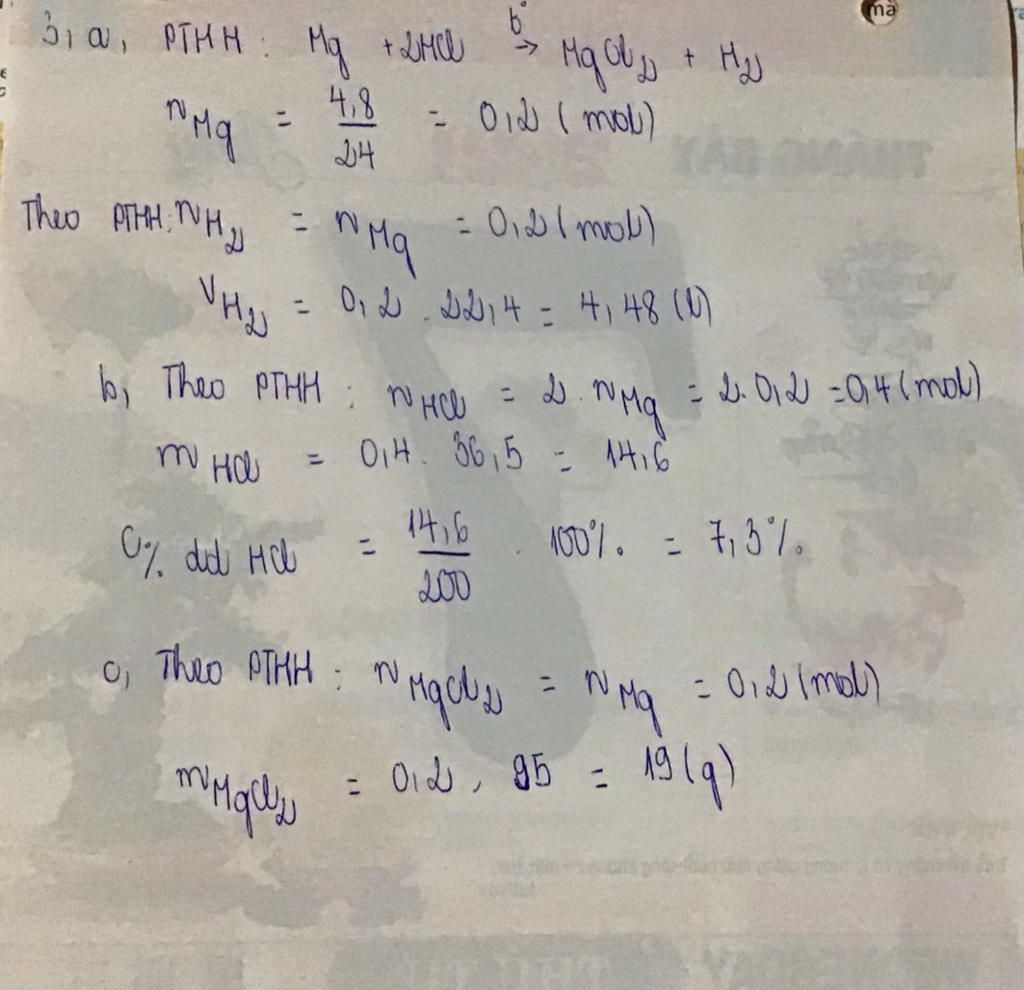 mà
3, a, PTHH : Mg + 2HCl t° → MgCl₂ + H₂
nMg = 4,8/24 = 0,2 (mol)
Theo PTHH: nH₂ = nMg = 0,2 (mol)
VH₂ = 0,2 . 22,4 = 4,48 (l)
b, Theo PTHH : nHCl = 2 . nMg = 2. 0,2 = 0,4 (mol)
mHCl = 0,4. 36,5 = 14,6
C% dd HCl = 14,6/200 . 100% = 7,3%
c, Theo PTHH : nMgCl₂ = nMg = 0,2 (mol)
mMgCl₂ = 0,2 . 95 = 19 (g)
THÁNG BẢY